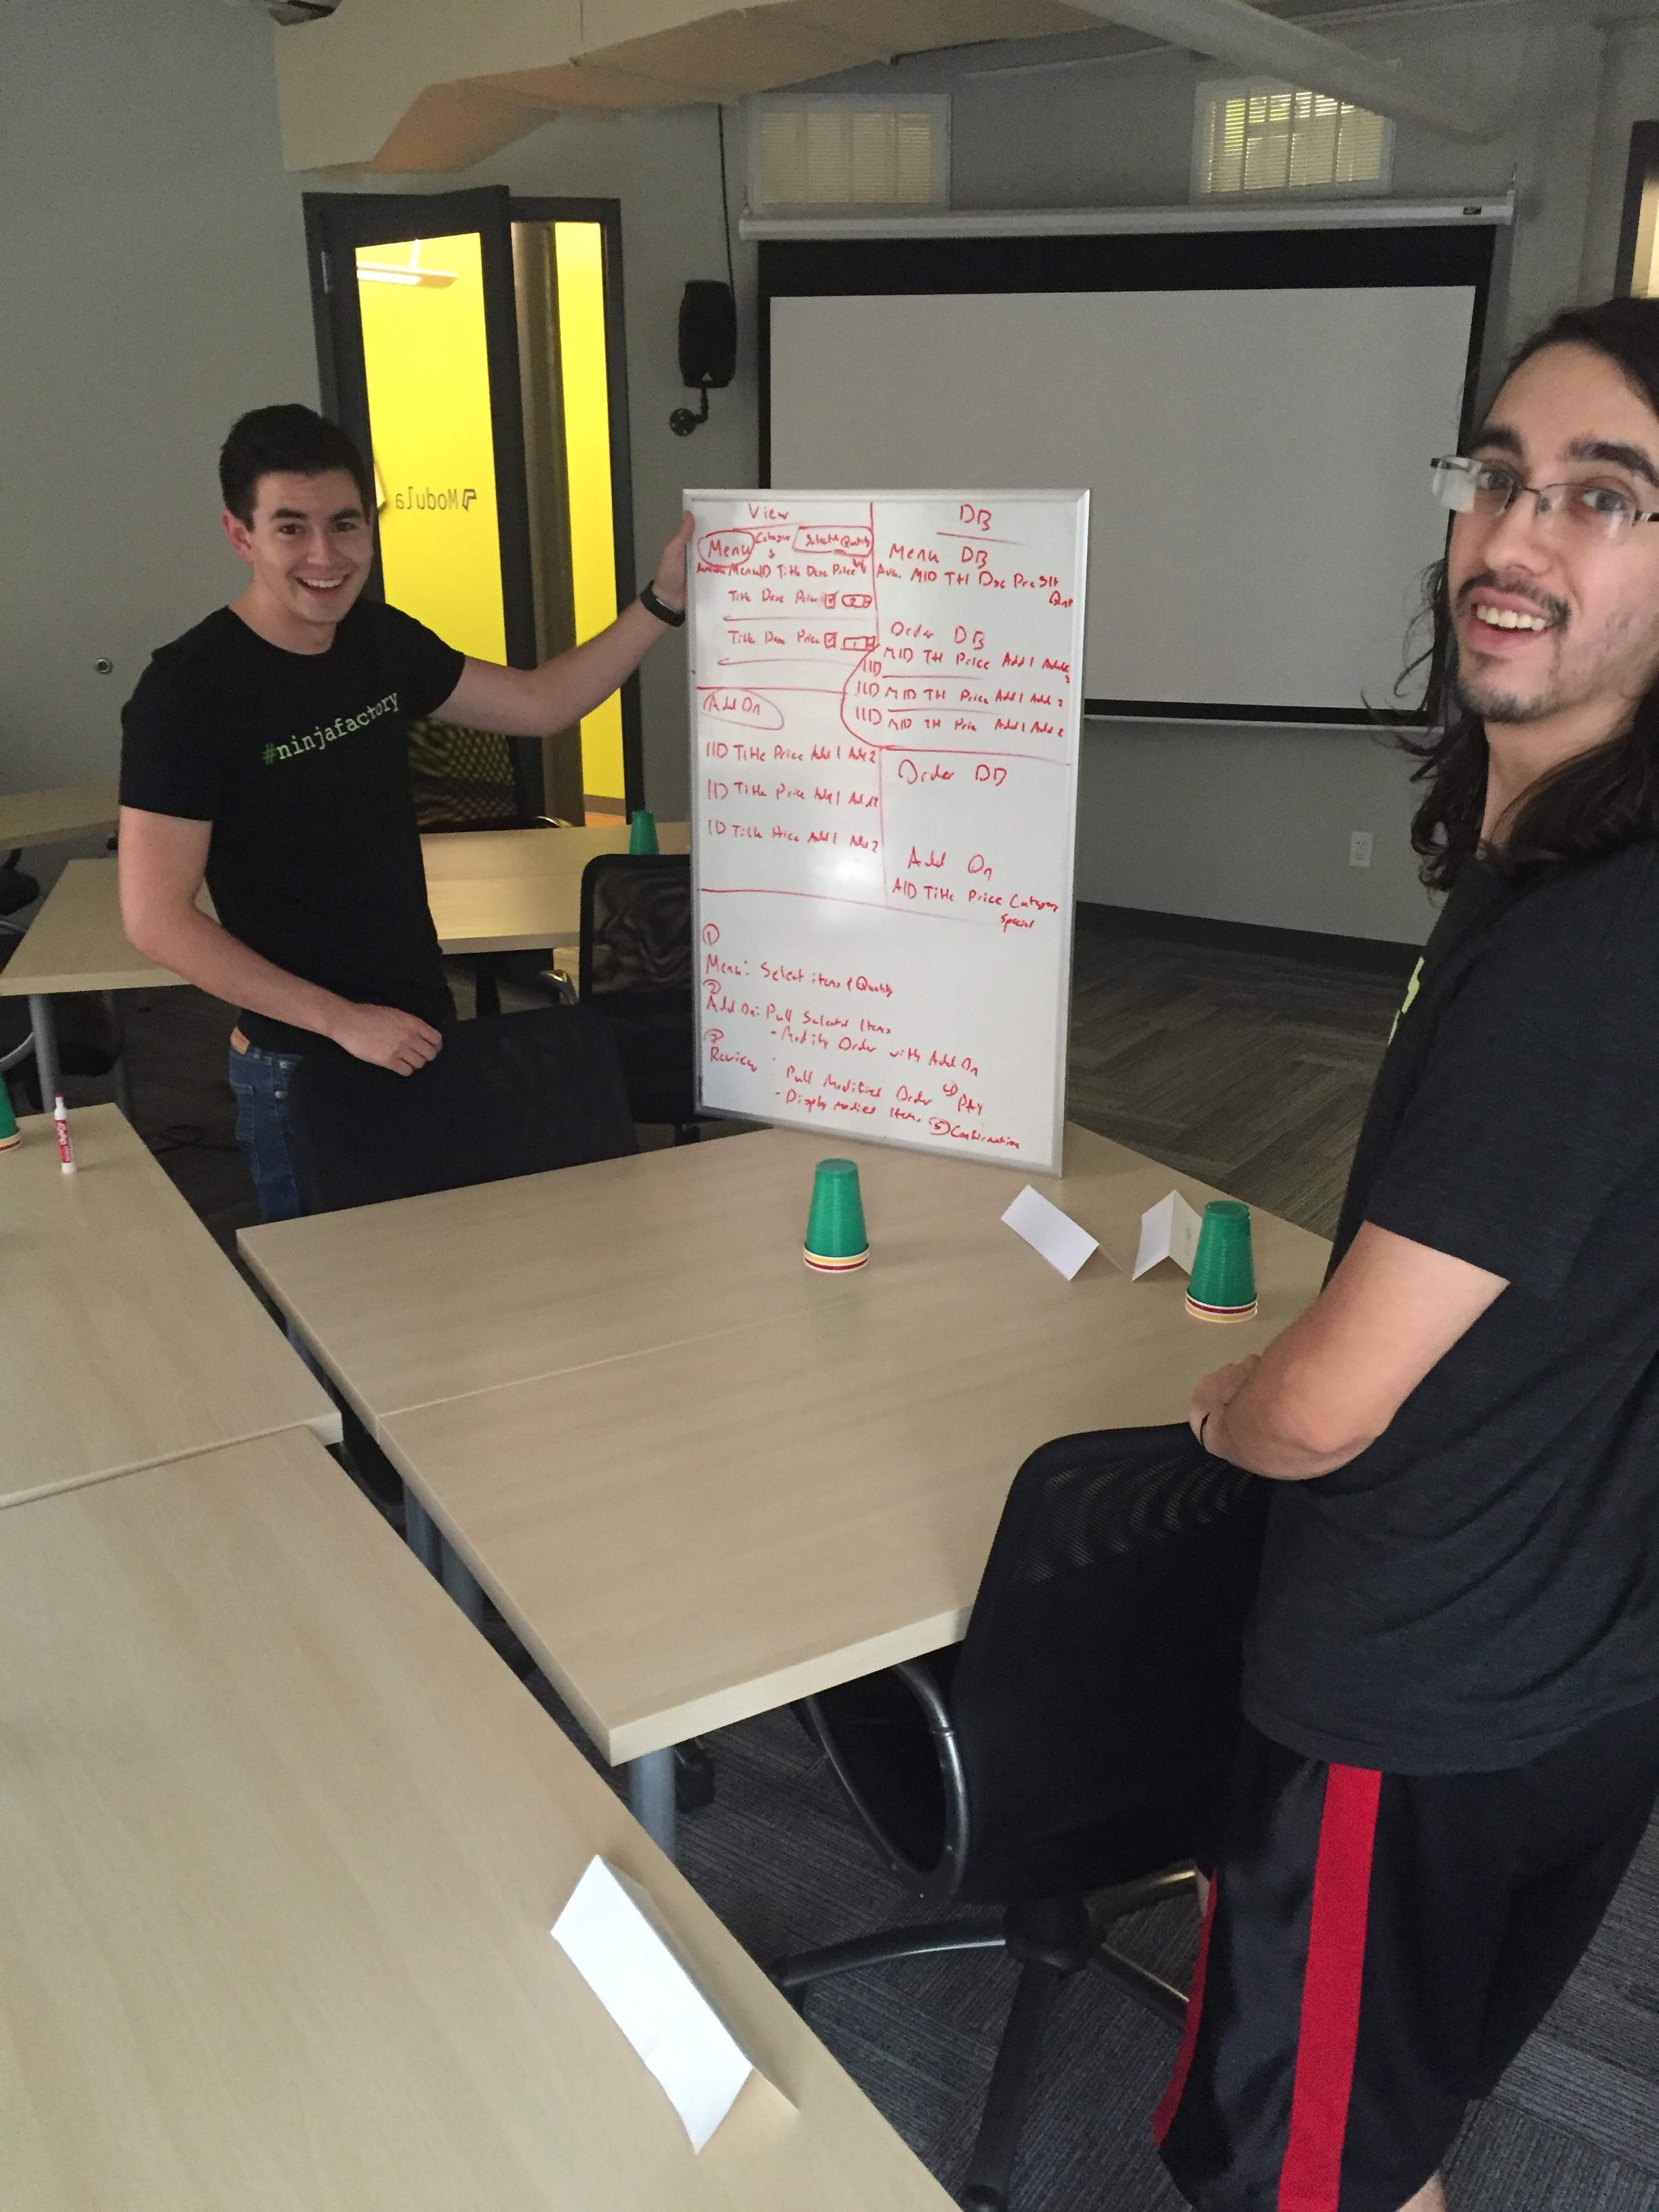 Modula
#ninjafactory
View
Menu
Select Quantity
MenuID Title Desc Price
Title Desc Price 2
Title Desc Price 1
Add On
IID Title Price Add 1 Add 2
IID Title Price Add 1 Add 2
IID Title Price Add 1 Add 2
DB
Menu DB
Ava. MID Ttl Dsc Prc Slt
Order DB
MID Ttl Price Add 1 Add 2
IID
IID MID Ttl Price Add 1 Add 2
IID MID Ttl Price Add 1 Add 2
Order DB
Add On
AID Title Price Category
Special
①
Menu: Select items & Quantity
②
Add On: Pull Selected Items
- Modify Order with Add On
③
Review: Pull Modified Order ④ Pay
- Display modified Items ⑤ Confirmation
EXPO